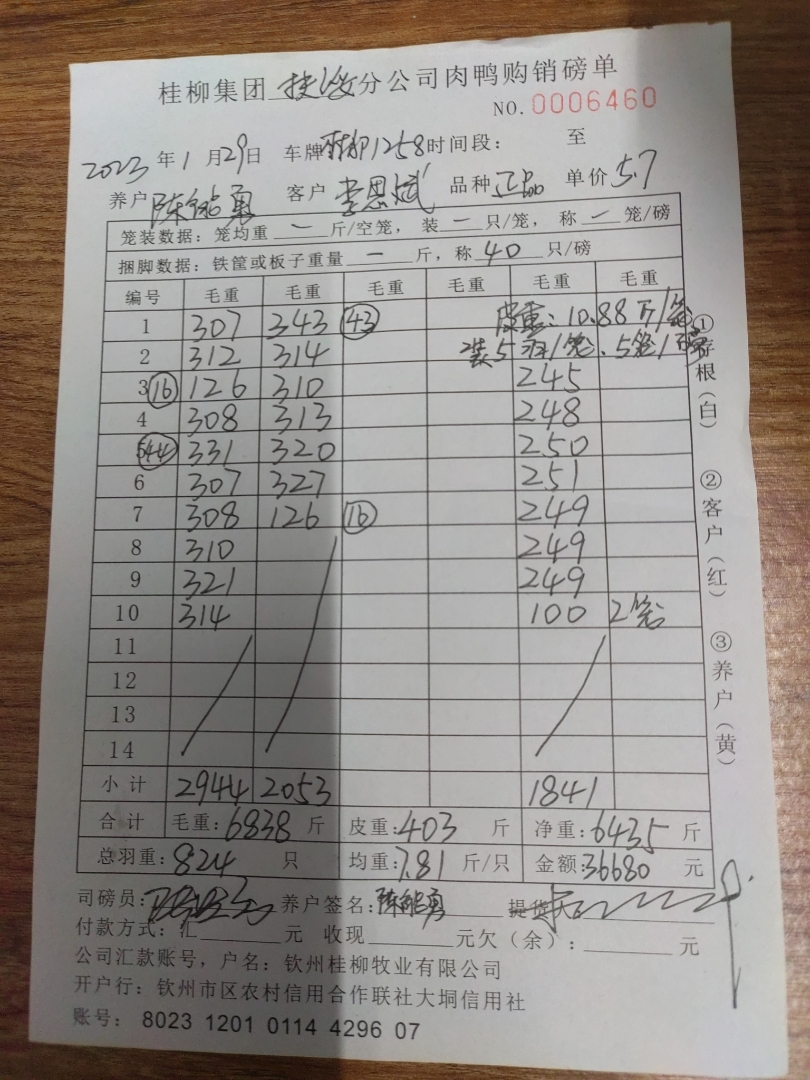 桂柳集团扶绥分公司肉鸭购销磅单
NO. 0006460
2023年1月29日 车牌桂柳1258时间段: 至
养户 陈能勇 客户 李思斌 品种 正品 单价 5.7
笼装数据: 笼均重 一 斤/空笼, 装 一 只/笼, 称 一 笼/磅
捆脚数据: 铁筐或板子重量 一 斤, 称 40 只/磅
编号 毛重 毛重 毛重 毛重 毛重 毛重
1 307 343 43 皮重: 10.88斤/笼
2 312 314 装5羽/笼. 5笼/磅
3 16 126 310 245
4 308 313 248
544 331 320 250
6 307 327 251
7 308 126 16 249
8 310 249
9 321 249
10 314 100 2笼
11
12
13
14
小计 2944 2053 1841
合计 毛重: 6838 斤 皮重: 403 斤 净重: 6435 斤
总羽重: 824 只 均重: 7.81 斤/只 金额: 36680 元
司磅员: 养户签名: 陈能勇 提货人
付款方式: 汇 元 收现 元欠(余): 元
公司汇款账号, 户名: 钦州桂柳牧业有限公司
开户行: 钦州市区农村信用合作联社大垌信用社
账号: 8023 1201 0114 4296 07
①存根(白) ②客户(红) ③养户(黄)